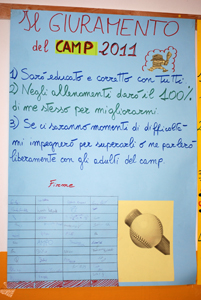 Il GIURAMENTO
del CAMP 2011
1) Sarò educato e corretto con tutti.
2) Negli allenamenti darò il 100%
di me stesso per migliorarmi.
3) Se ci saranno momenti di difficolta-
mi impegnerò per superarli o ne parlerò
liberamente con gli adulti del camp.
Firme